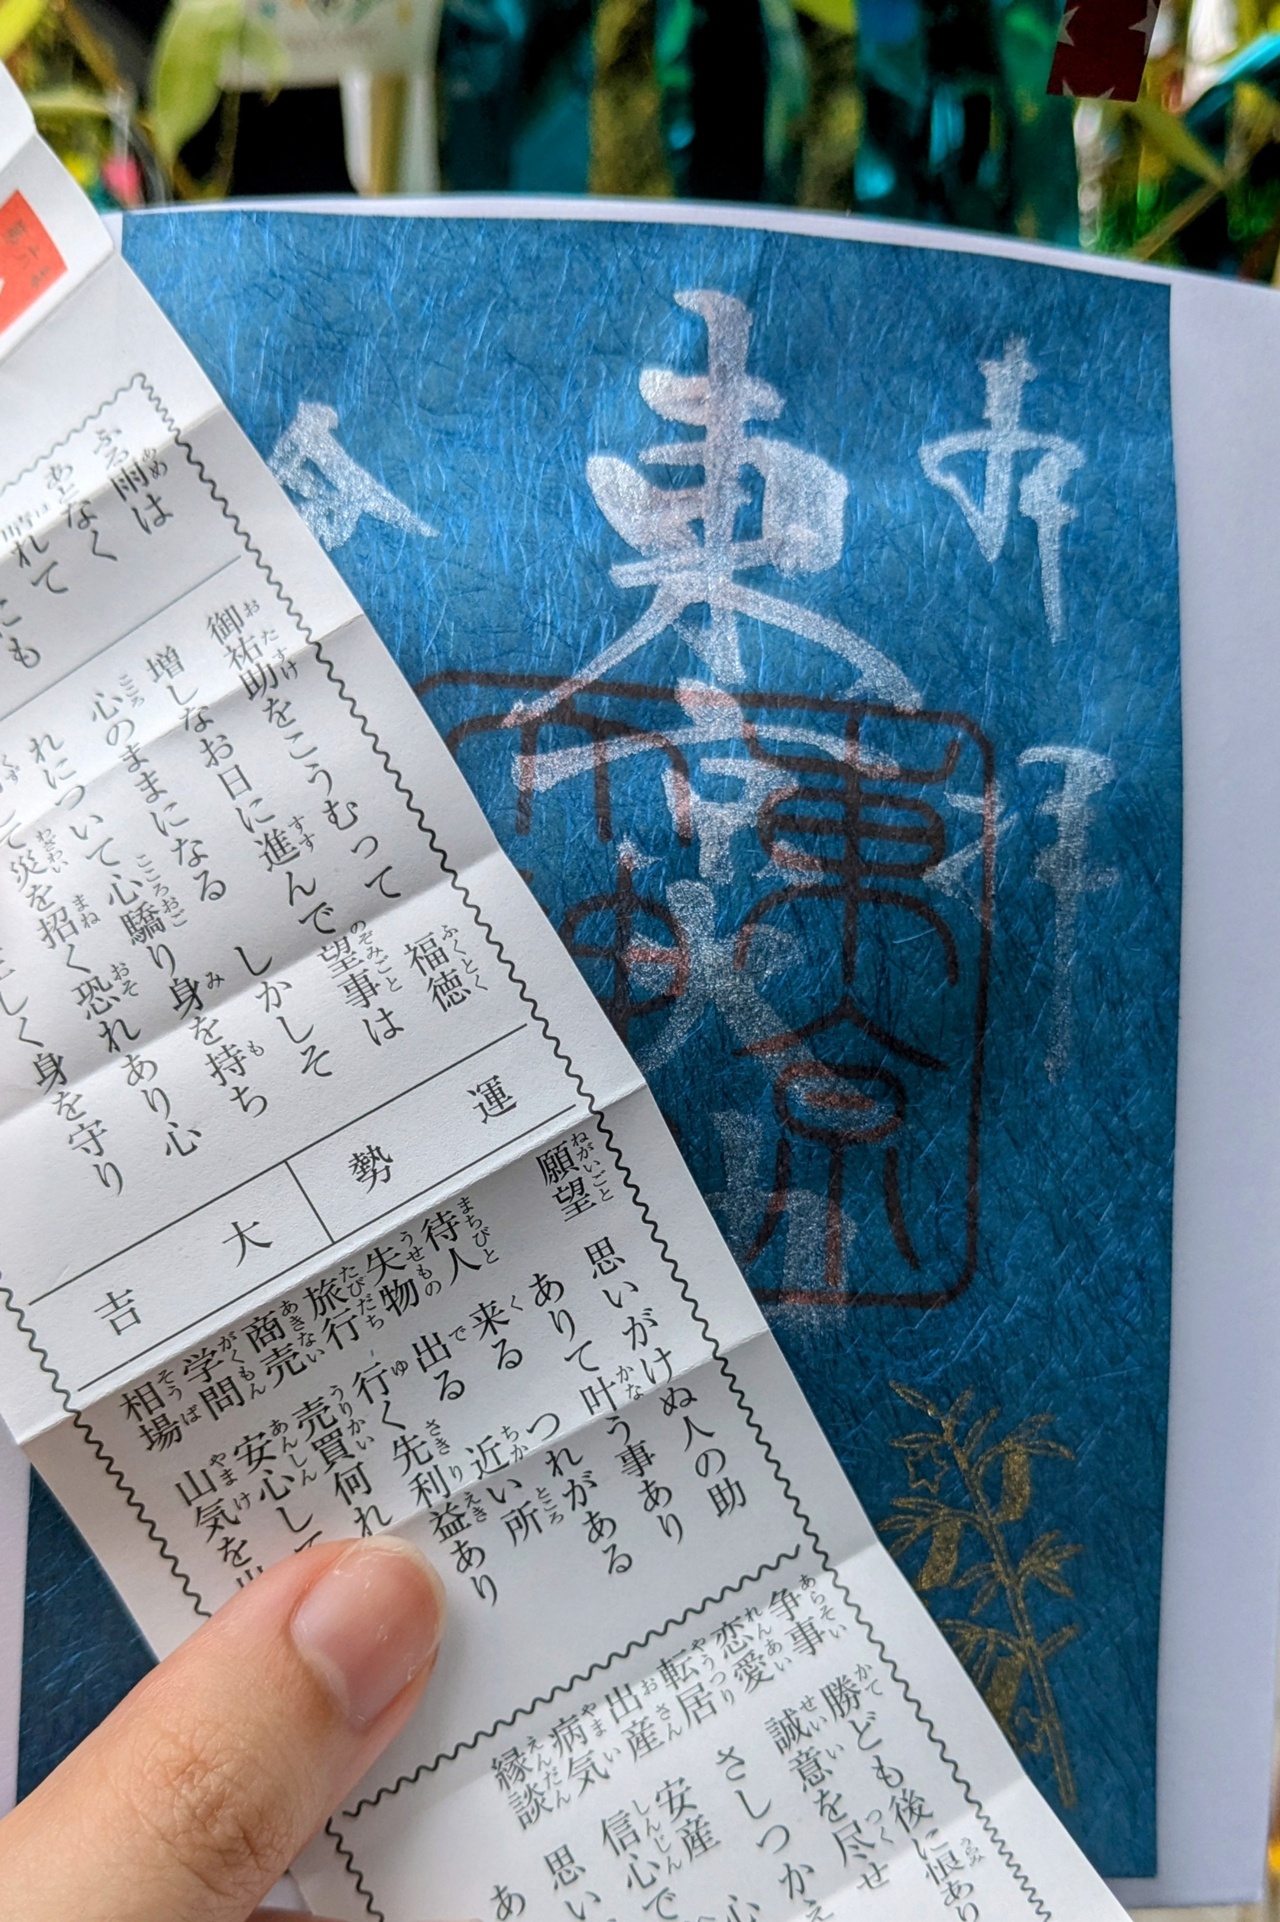 奉拝
東京大神宮
ふる雨は
あとなく
れて
にも
運勢
大吉
福徳
御祐助をこうむって望事は
増しなお日に進んで
心のままになる しかしそ
れについて心驕り身を持ち
して災を招く恐れあり心
しく身を守り
願望 思いがけぬ人の助
ありて叶う事あり
待人 来る つれがある
失物 出る 近い所
旅行 行く先利益あり
商売 売買何れ
学問 安心して
相場 山気を
争事 勝ども後に恨あり
恋愛 誠意を尽せ
転居 さしつかえ
出産 安産
病気 信心で
縁談 思い
あ
心